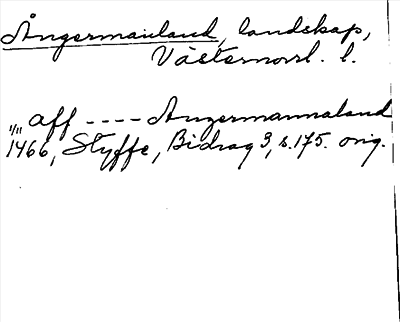 Ångermanland, landskap,
Västernorrl. l.
aff ---- Angermannaland
1/11 1466, Styffe, Bidrag 3, s. 175. orig.